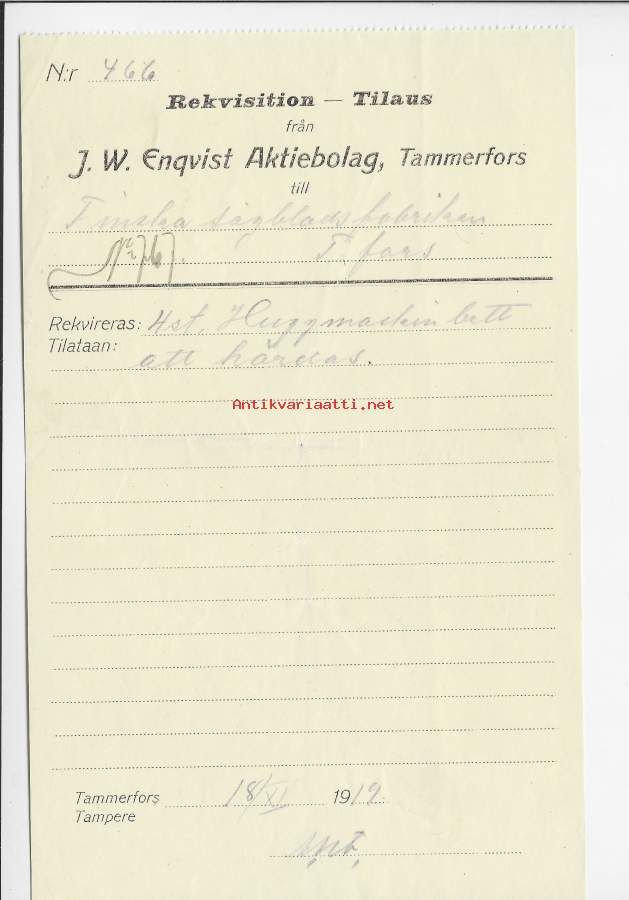 N:r 466
Rekvisition — Tilaus
från
J. W. Enqvist Aktiebolag, Tammerfors
till
Finska sågbladsfabriken
T. fors
Rekvireras: 4 st. Huggmaskin bett
Tilataan: att härdas.
Antikvariaatti.net
Tammerfors 18/XI 1919.
Tampere